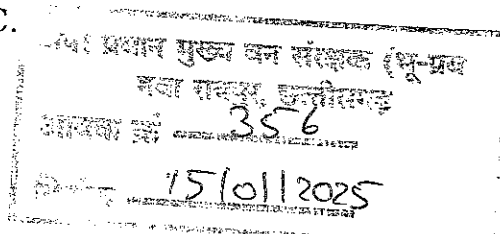 C.
प्रधान मुख्य वन संरक्षक (भू-प्रब
नवा रायपुर, छत्तीसगढ़
आवक क्रं 356
दिनांक 15/01/2025